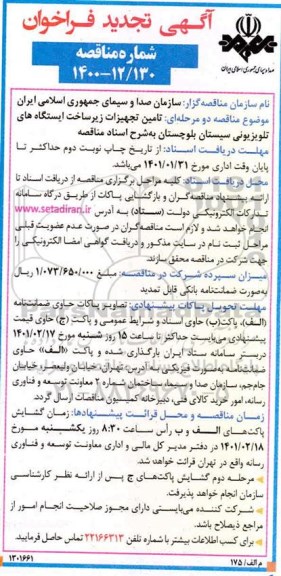 آگهی تجدید فراخوان
شماره مناقصه
۱۴۰۰-۱۲/۱۳۰
صدا و سیمای جمهوری اسلامی ایران
نام سازمان مناقصه‌گزار: سازمان صدا و سیمای جمهوری اسلامی ایران
موضوع مناقصه دو مرحله‌ای: تامین تجهیزات زیرساخت ایستگاه های
تلویزیونی سیستان بلوچستان به‌شرح اسناد مناقصه
مهلت دریافت اسناد: از تاریخ چاپ نوبت دوم حداکثر تا
پایان وقت اداری مورخ ۱۴۰۱/۰۱/۳۱ می‌باشد.
محل دریافت اسناد: کلیه مراحل برگزاری مناقصه از دریافت اسناد تا
ارائه پیشنهاد مناقصه‌گران و بازگشایی پاکات از طریق درگاه سامانه
تدارکات الکترونیکی دولت (ستاد) به آدرس www.setadiran.ir
انجام خواهد شد و لازم است مناقصه‌گران در صورت عدم عضویت قبلی
مراحل ثبت نام در سایت مذکور و دریافت گواهی امضا الکترونیکی را
جهت شرکت در مناقصه محقق سازند.
میزان سپرده شرکت در مناقصه: مبلغ ۱/۰۷۳/۶۵۰/۰۰۰ ریال
به‌صورت ضمانتنامه بانکی قابل تمدید
مهلت تحویل پاکات پیشنهادی: تصاویر پاکات حاوی ضمانتنامه
(الف)، پاکت(ب) حاوی اسناد و شرایط عمومی و پاکت (ج) حاوی قیمت
پیشنهادی می‌بایست حداکثر تا ساعت ۱۵ روز شنبه مورخ ۱۴۰۱/۰۲/۱۷
دربستر سامانه ستاد ایران بارگذاری شده و پاکت «الف» حاوی
ضمانتنامه به‌صورت فیزیکی به آدرس: تهران، خیابان ولیعصر، خیابان
جام‌جم، سازمان صدا و سیما، ساختمان شماره ۲ معاونت توسعه و فناوری
رسانه، امور خرید کالای فنی، دبیرخانه کمیسیون مناقصات ارسال گردد.
زمان مناقصه و محل قرائت پیشنهادها: زمان گشایش
پاکت‌های الف و ب رأس ساعت ۸:۳۰ روز یکشنبه مورخ
۱۴۰۱/۰۲/۱۸ در دفتر مدیر کل مالی و اداری معاونت توسعه و فناوری
رسانه واقع در تهران قرائت خواهد شد.
- مرحله دوم گشایش پاکت‌های ج پس از ارائه نظر کارشناسی
سازمان انجام خواهد پذیرفت.
- شرکت کننده می‌بایستی دارای مجوز صلاحیت انجام امور از
مراجع ذیصلاح باشد.
- برای کسب اطلاعات بیشتر با شماره تلفن ۲۲۱۶۶۳۱۳ تماس حاصل فرمایید.
م الف/ ۱۷۵
۱۳۰۱۶۶۱